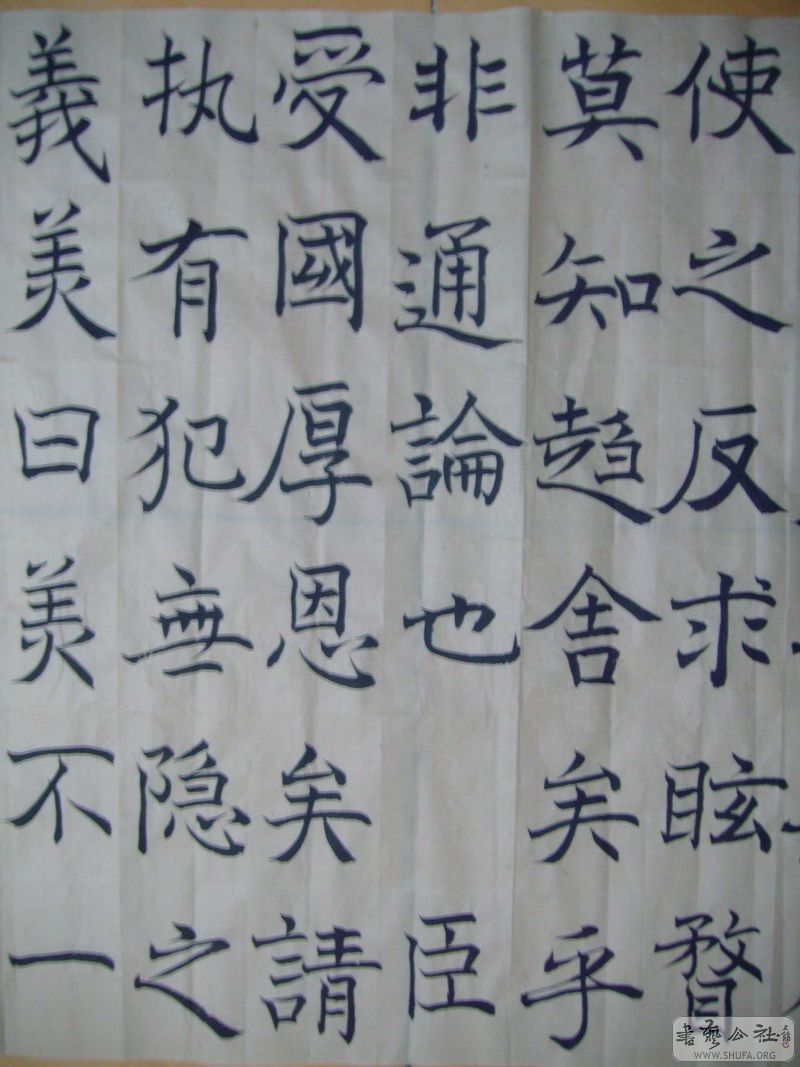 使之反求眩瞀
莫知趨舍矣乎
非通論也 臣
受國厚恩矣請
执有犯無隐之
義羙曰羙不一
書藝公社
WWW.SHUFA.ORG